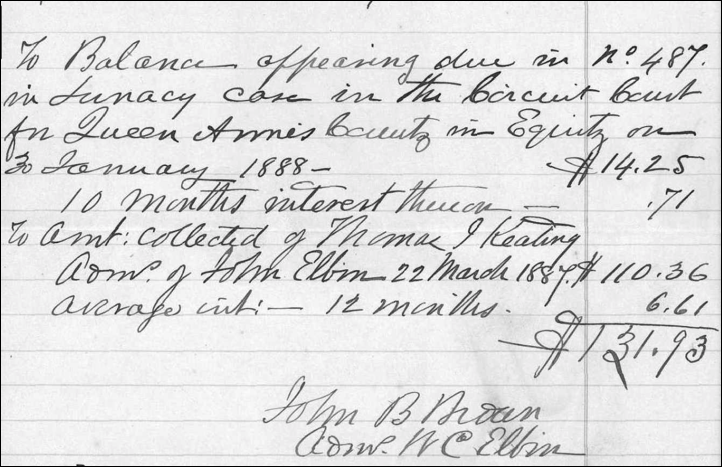 To Balance appearing due in No. 487.
in Lunacy case in the Circuit Court
for Queen Anne's County in Equity on
30 January 1888 - $14.25
10 months interest thereon — .71
To Amt: collected of Thomas J Keating
Admr. of John Elbin 22 March 1887. $110.36
average int: — 12 months. 6.61
$131.93
John B Brown
Admr. W C Elbin